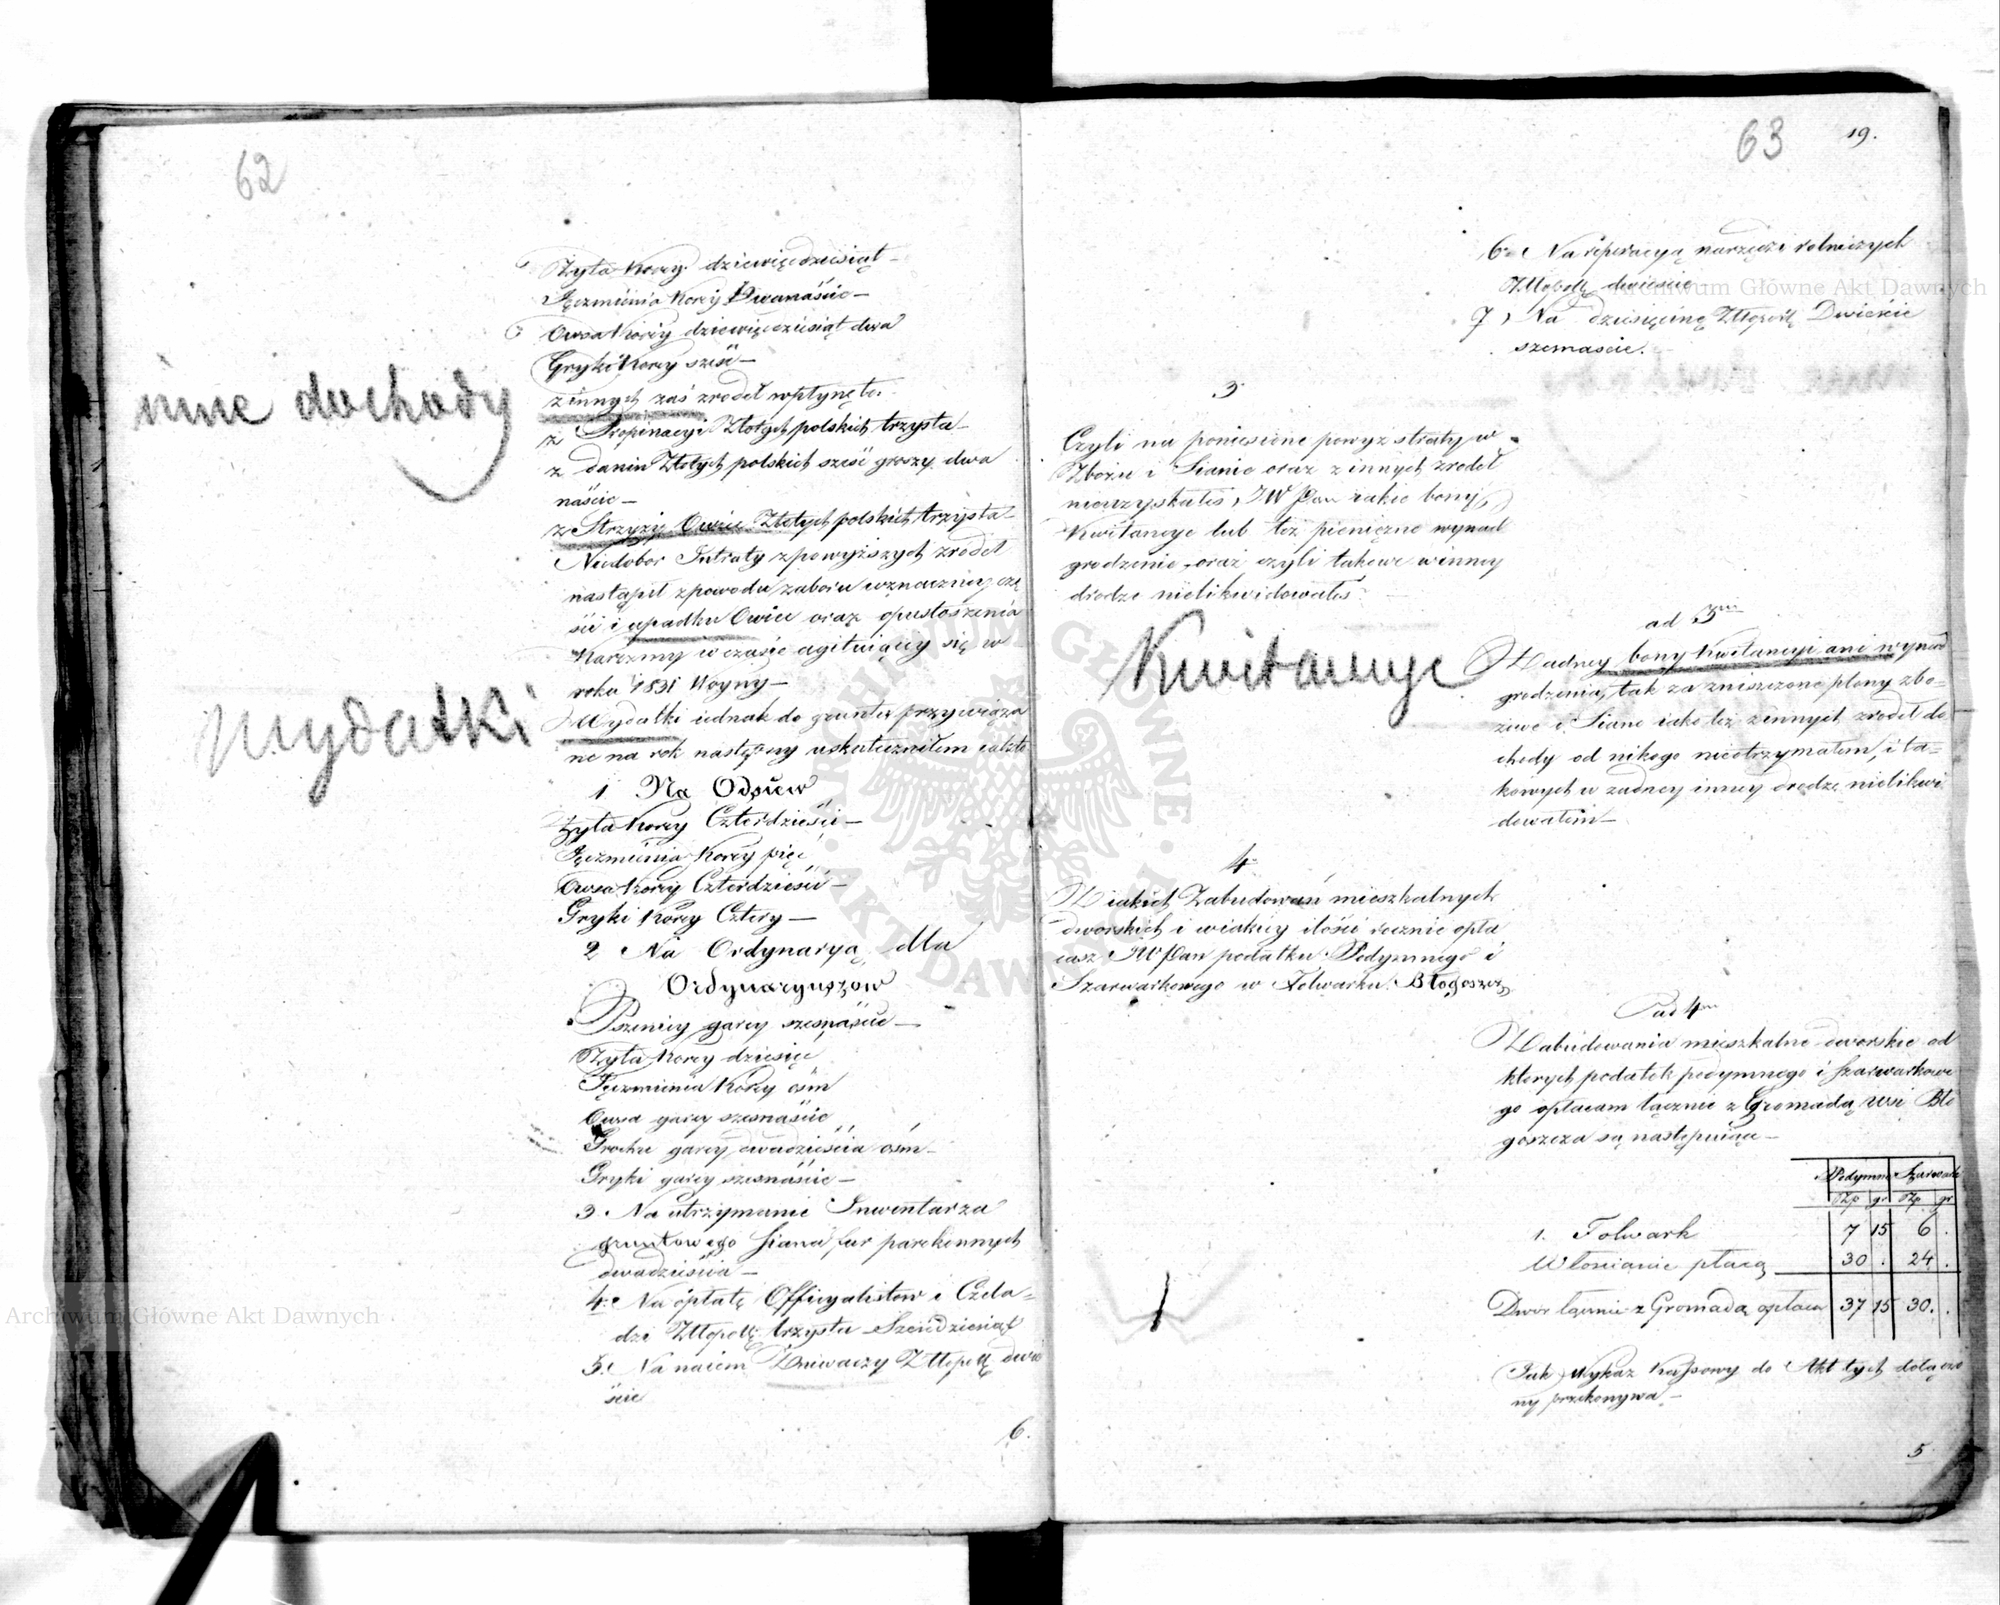 62
Żyta Korcy dziewięcdziesiąt –
Jęczmienia Korcy Dwanaście –
Owsa Korcy dziewięcdziesiąt dwa
Gryki Korcy sześć –
z innych zaś zrodeł wpłynęło.
inne dochody
z Propinacyi Złotych polskich trzysta –
z danin Złotych polskich sześć groszy dwa
naście –
z Strzyży Owiec Złotych polskich trzysta –
Niedobor Intraty z powyższych zrodeł
nastąpił z powodu zaboru w znaczney czę
ści i upadku Owiec oraz opustoszenia
Karczmy w czasie agituiącey się w –
roku 1831 Woyny –
Wydatki
Wydatki iednak do gruntu przywiąza
ne na rok następny uskuteczniłem
1 Na Odsiew
Żyta Korcy Czterdzieści –
Jęczmienia Korcy pięć
Owsa Korcy Czterdzieści –
Gryki Korcy Cztery –
2 Na Ordynaryą dla
Ordynaryuszow
Pszenicy garcy szesnaście –
Żyta Korcy dziesięć
Jęczmienia Korcy ośm
Owsa garcy szesnaście
Grochu garcy dwadzieścia ośm –
Gryki garcy szesnaście –
3 Na utrzymanie Inwentarza
gruntowego Siana fur parokonnych
dwadzieścia –
4. Na opłatę Officyalistow i Czela-
dzi Złłopolł trzysta Sześdziesiąt
5. Na naiem Żniwiarzy Złłopolł dwie
ście
6.
63 19.
6 Na reperacyą narzędzi rolniczych
Złłopolł dwieście
7, Na dziesięcinę Złłopolł Dwieście
szesnaście.
3
Czyli na poniesione powyz straty w
Zbożu i Sianie oraz z innych zrodeł
nieuzyskałeś, JW Pan iakie bony
Kwitancye lub też pieniężne wynad
grodzenie, oraz czyli takowe w inney
drodze nielikwidowałeś?
ad 3um
Kwitancye
Żadney bony Kwitancyi ani wynad
grodzenia, tak za zniszczone plony zbo-
żowe i Siano iako też z innych zrodeł do
chody od nikogo nieotrzymałem, i ta-
kowych w żadney inney drodze nielikwi
dowałem –
4
Z iakich Zabudowań mieszkalnych
dworskich i w iakiey ilości rocznie opła
casz JWPan podatku Podymnego i
Szarwarkowego w Folwarku Błogoszcz
ad 4um
Zabudowania mieszkalne dworskie od
ktorych podatek podymnego i szarwarkowe
go opłacam łącznie z Gromadą wsi Bło
goszcza są następuiące –
Podymne Szarwark
Złp gr Złp gr
1. Folwark 7 15 6 .
Włościanie płacą 30 . 24 .
Dwor łącznie z Gromadą opłaca 37 15 30. .
Jak Wykaz Kassowy do Akt tych dołączo
ny przekonywa –
5
Archiwum Główne Akt Dawnych
Archiwum Główne Akt Dawnych